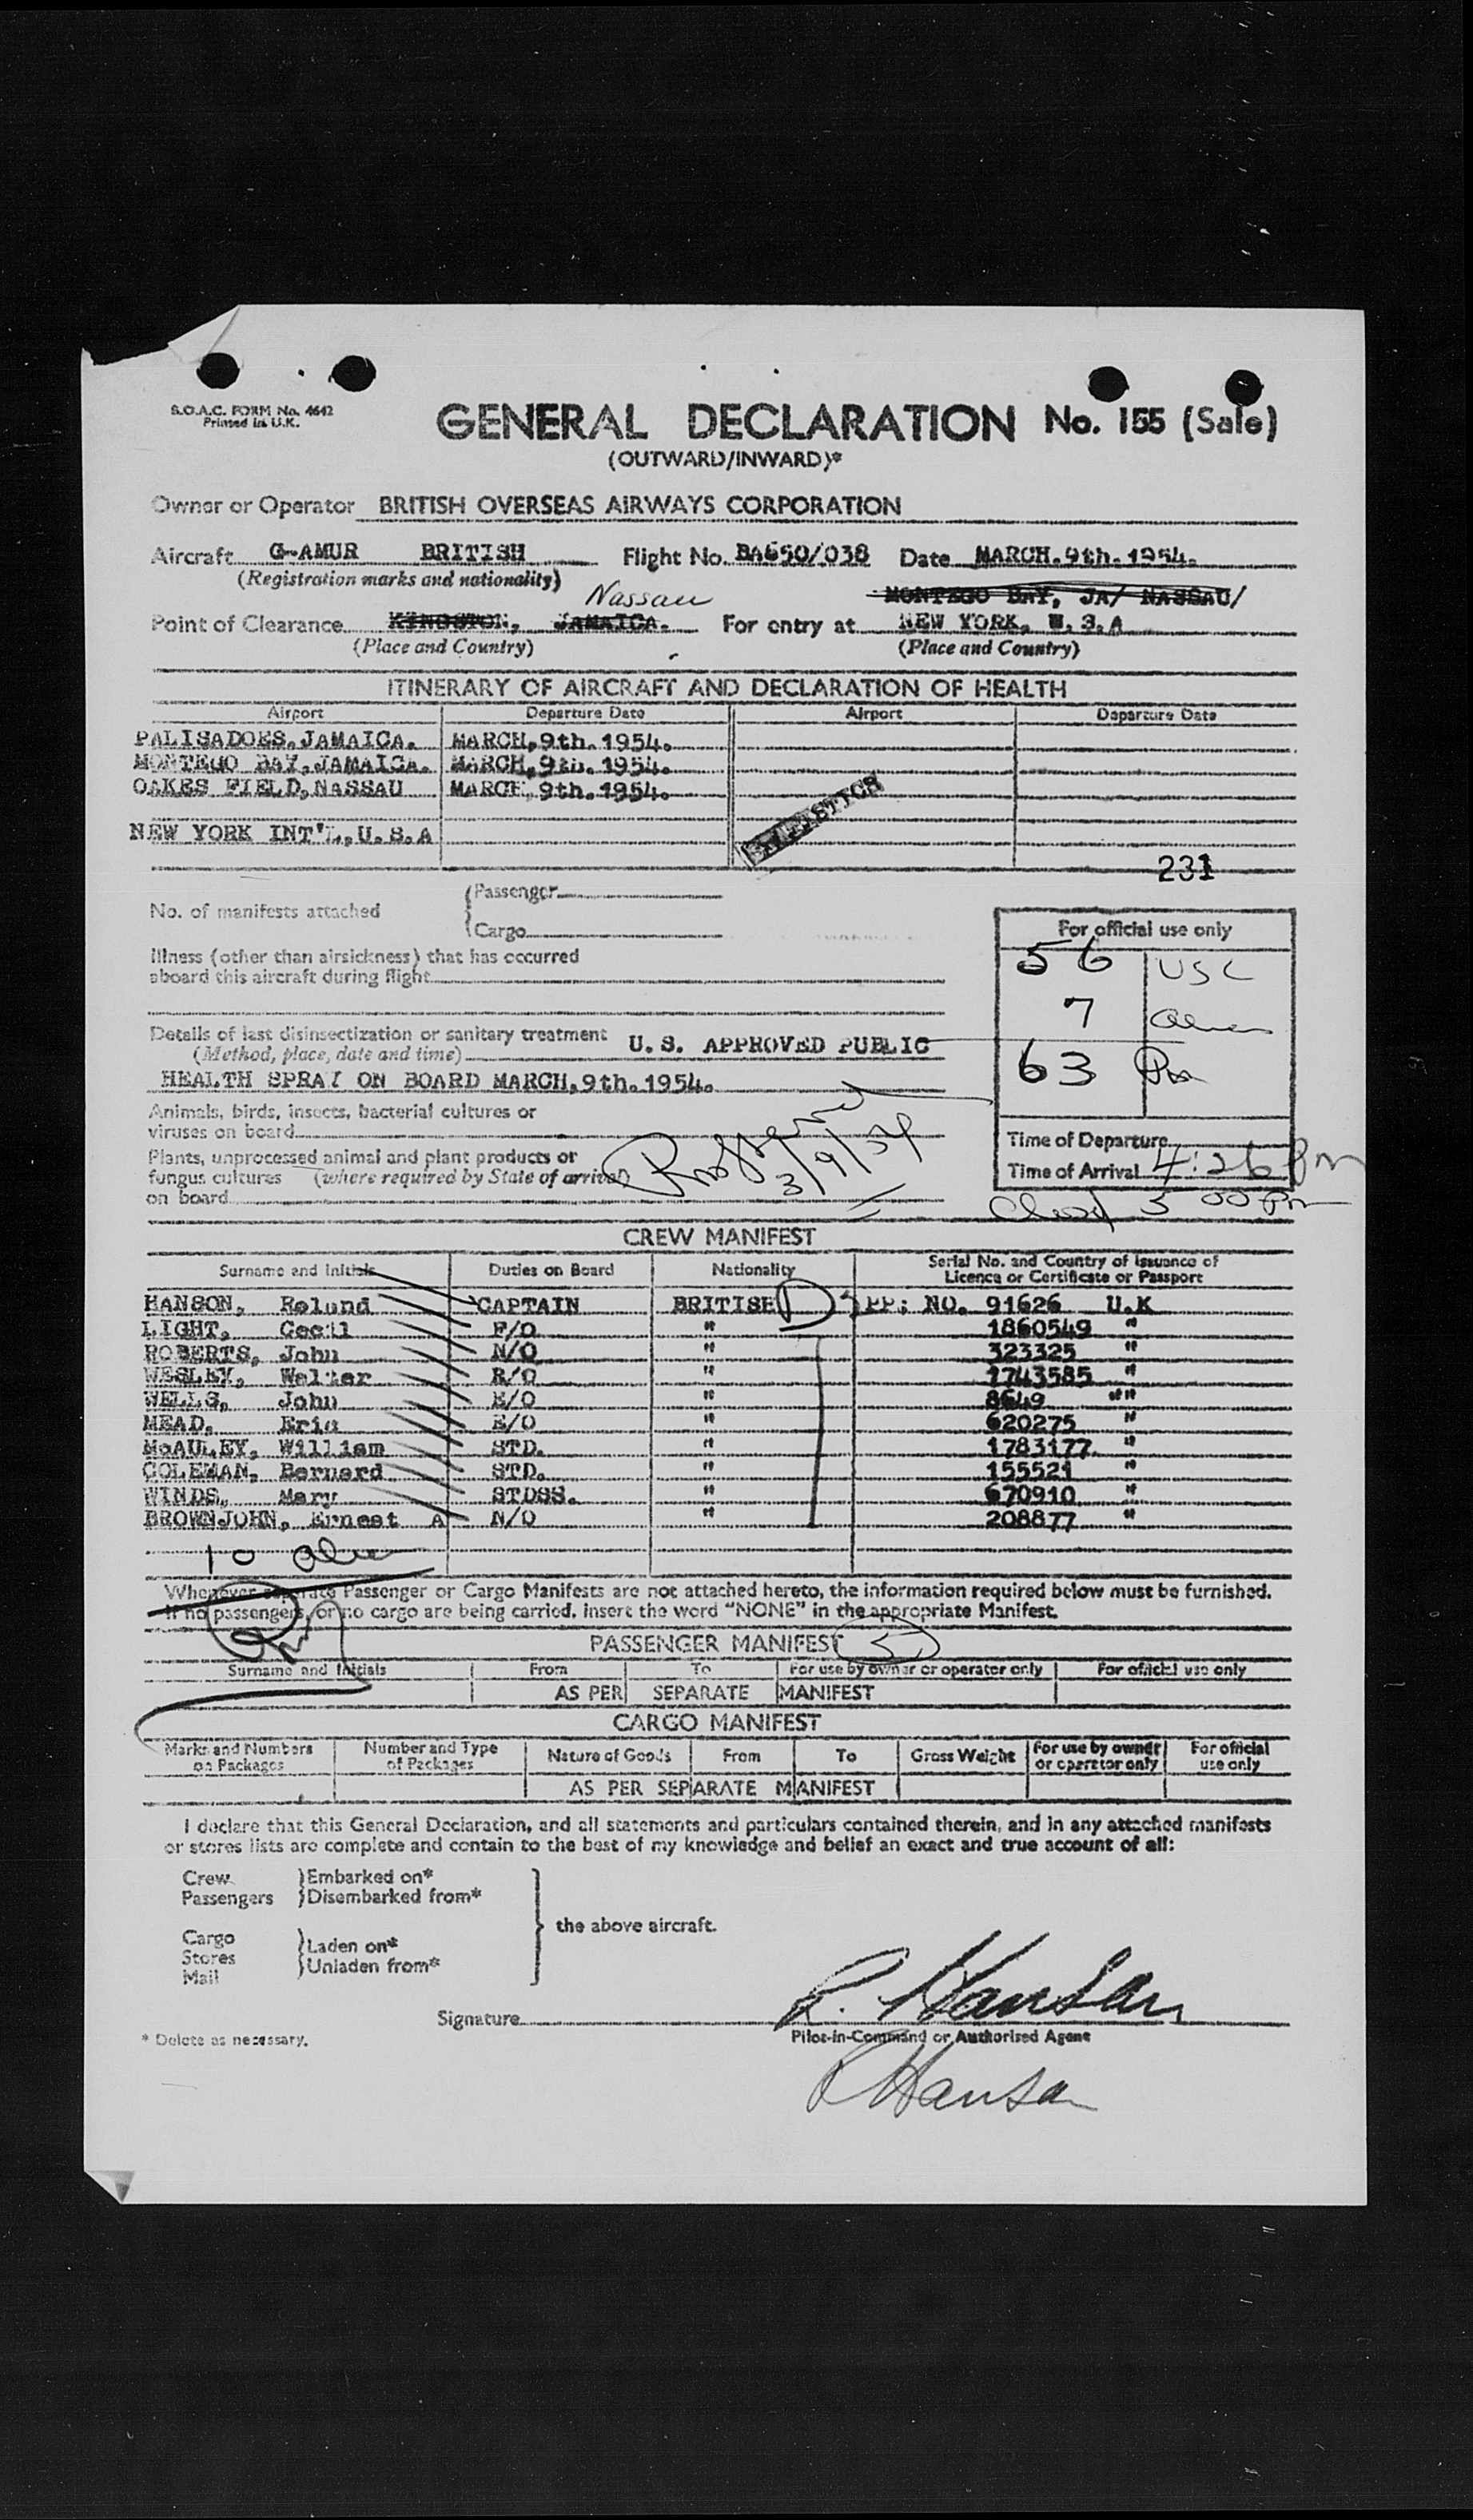 B.O.A.C. FORM No. 4642
Printed in U.K.
GENERAL DECLARATION No. 155 (Sale)
(OUTWARD/INWARD)*
Owner or Operator BRITISH OVERSEAS AIRWAYS CORPORATION
Aircraft G-AMUR BRITISH Flight No. BA650/038 Date MARCH.9th.1954.
(Registration marks and nationality)
Nassau MONTEGO BAY, JA/ NASSAU/
Point of Clearance KINGSTON, JAMAICA. For entry at NEW YORK, U.S.A
(Place and Country) (Place and Country)
ITINERARY OF AIRCRAFT AND DECLARATION OF HEALTH
Airport Departure Date Airport Departure Date
PALISADOES,JAMAICA. MARCH,9th.1954.
MONTEGO BAY,JAMAICA. MARCH,9th.1954.
OAKES FIELD,NASSAU MARCH,9th.1954.
NEW YORK INT'L,U.S.A
231
No. of manifests attached
Passenger
Cargo
For official use only
56 USC
7
63
Illness (other than airsickness) that has occurred
aboard this aircraft during flight
Details of last disinsectization or sanitary treatment U.S. APPROVED PUBLIC
(Method, place, date and time)
HEALTH SPRAY ON BOARD MARCH,9th.1954.
Animals, birds, insects, bacterial cultures or
viruses on board
Plants, unprocessed animal and plant products or
fungus cultures (where required by State of arrival)
on board
3/9/54
Time of Departure
Time of Arrival 4:26 Pm
Closed 5 00 Pm
CREW MANIFEST
Surname and Initials Duties on Board Nationality Serial No. and Country of Issuance of
Licence or Certificate or Passport
HANSON, Roland CAPTAIN BRITISH PP: NO. 91626 U.K
LIGHT, Cecil F/O " 1860549 "
ROBERTS, John N/O " 323325 "
WESLEY, Walter R/O " 1743585 "
WELLS, John E/O " 8649 ""
MEAD, Eric E/O " 620275 "
McAULEY, William STD. " 1783177 "
COLEMAN, Bernard STD. " 155521 "
WINDS, Mary STDSS. " 670910 "
BROWNJOHN, Ernest A N/O " 208877 "
10
Whenever separate Passenger or Cargo Manifests are not attached hereto, the information required below must be furnished.
If no passengers, or no cargo are being carried, insert the word "NONE" in the appropriate Manifest.
PASSENGER MANIFEST
Surname and Initials From To For use by owner or operator only For official use only
AS PER SEPARATE MANIFEST
CARGO MANIFEST
Marks and Numbers on Packages Number and Type of Packages Nature of Goods From To Gross Weight For use by owner or operator only For official use only
AS PER SEPARATE MANIFEST
I declare that this General Declaration, and all statements and particulars contained therein, and in any attached manifests
or stores lists are complete and contain to the best of my knowledge and belief an exact and true account of all:
Crew Embarked on*
Passengers Disembarked from*
the above aircraft.
Cargo
Stores
Mail
Laden on*
Unladen from*
Signature R. Hanson
* Delete as necessary. Pilot-in-Command or Authorised Agent
R Hanson